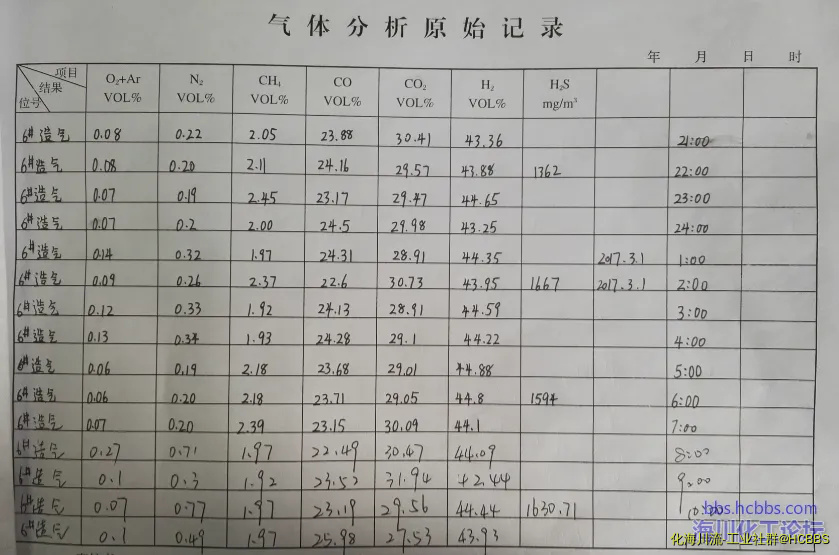 气体分析原始记录
年 月 日 时
项目 结果 位号 O₂+Ar VOL% N₂ VOL% CH₄ VOL% CO VOL% CO₂ VOL% H₂ VOL% H₂S mg/m³
6# 造气 0.08 0.22 2.05 23.88 30.41 43.36 21:00
6# 造气 0.08 0.20 2.11 24.16 29.57 43.88 1362 22:00
6# 造气 0.07 0.19 2.45 23.17 29.47 44.65 23:00
6# 造气 0.07 0.2 2.00 24.5 29.98 43.25 24:00
6# 造气 0.14 0.32 1.97 24.31 28.91 44.35 2017.3.1 1:00
6# 造气 0.09 0.26 2.37 22.6 30.73 43.95 1667 2017.3.1 2:00
6# 造气 0.12 0.33 1.92 24.13 28.91 44.59 3:00
6# 造气 0.13 0.34 1.93 24.28 29.1 44.22 4:00
6# 造气 0.06 0.19 2.18 23.68 29.01 44.88 5:00
6# 造气 0.06 0.20 2.18 23.71 29.05 44.8 1594 6:00
6# 造气 0.07 0.20 2.39 23.15 30.09 44.1 7:00
6# 造气 0.27 0.71 1.97 22.49 30.47 44.09 8:00
6# 造气 0.1 0.3 1.92 23.52 31.94 42.44 9:00
6# 造气 0.07 0.77 1.97 23.19 29.56 44.44 1630.71
6# 造气 0.1 0.49 1.97 25.98 27.53 43.93
bbs.hcbbs.com
海川化工论坛
化海川流-工业社群@HCBBS